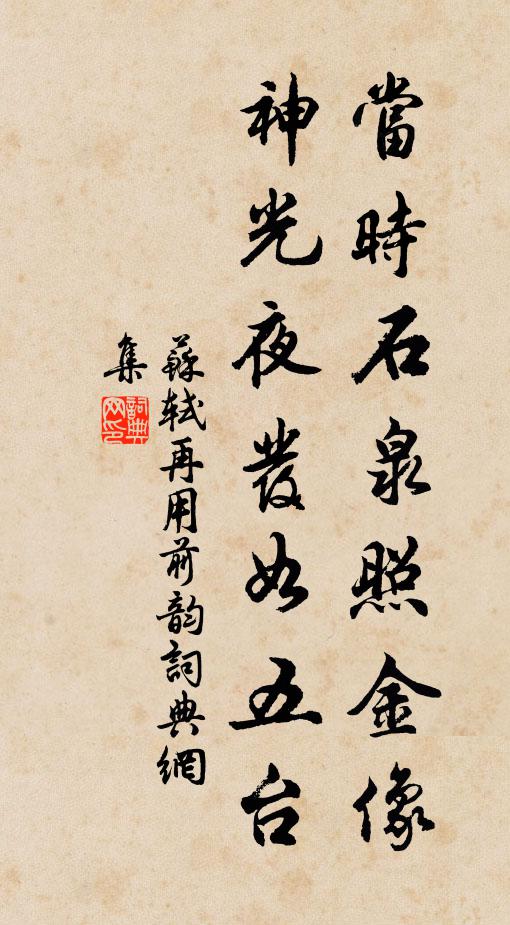 當時石泉照金像
神光夜發如五台
蘇軾再用前韵詞典網
集
詞典網印